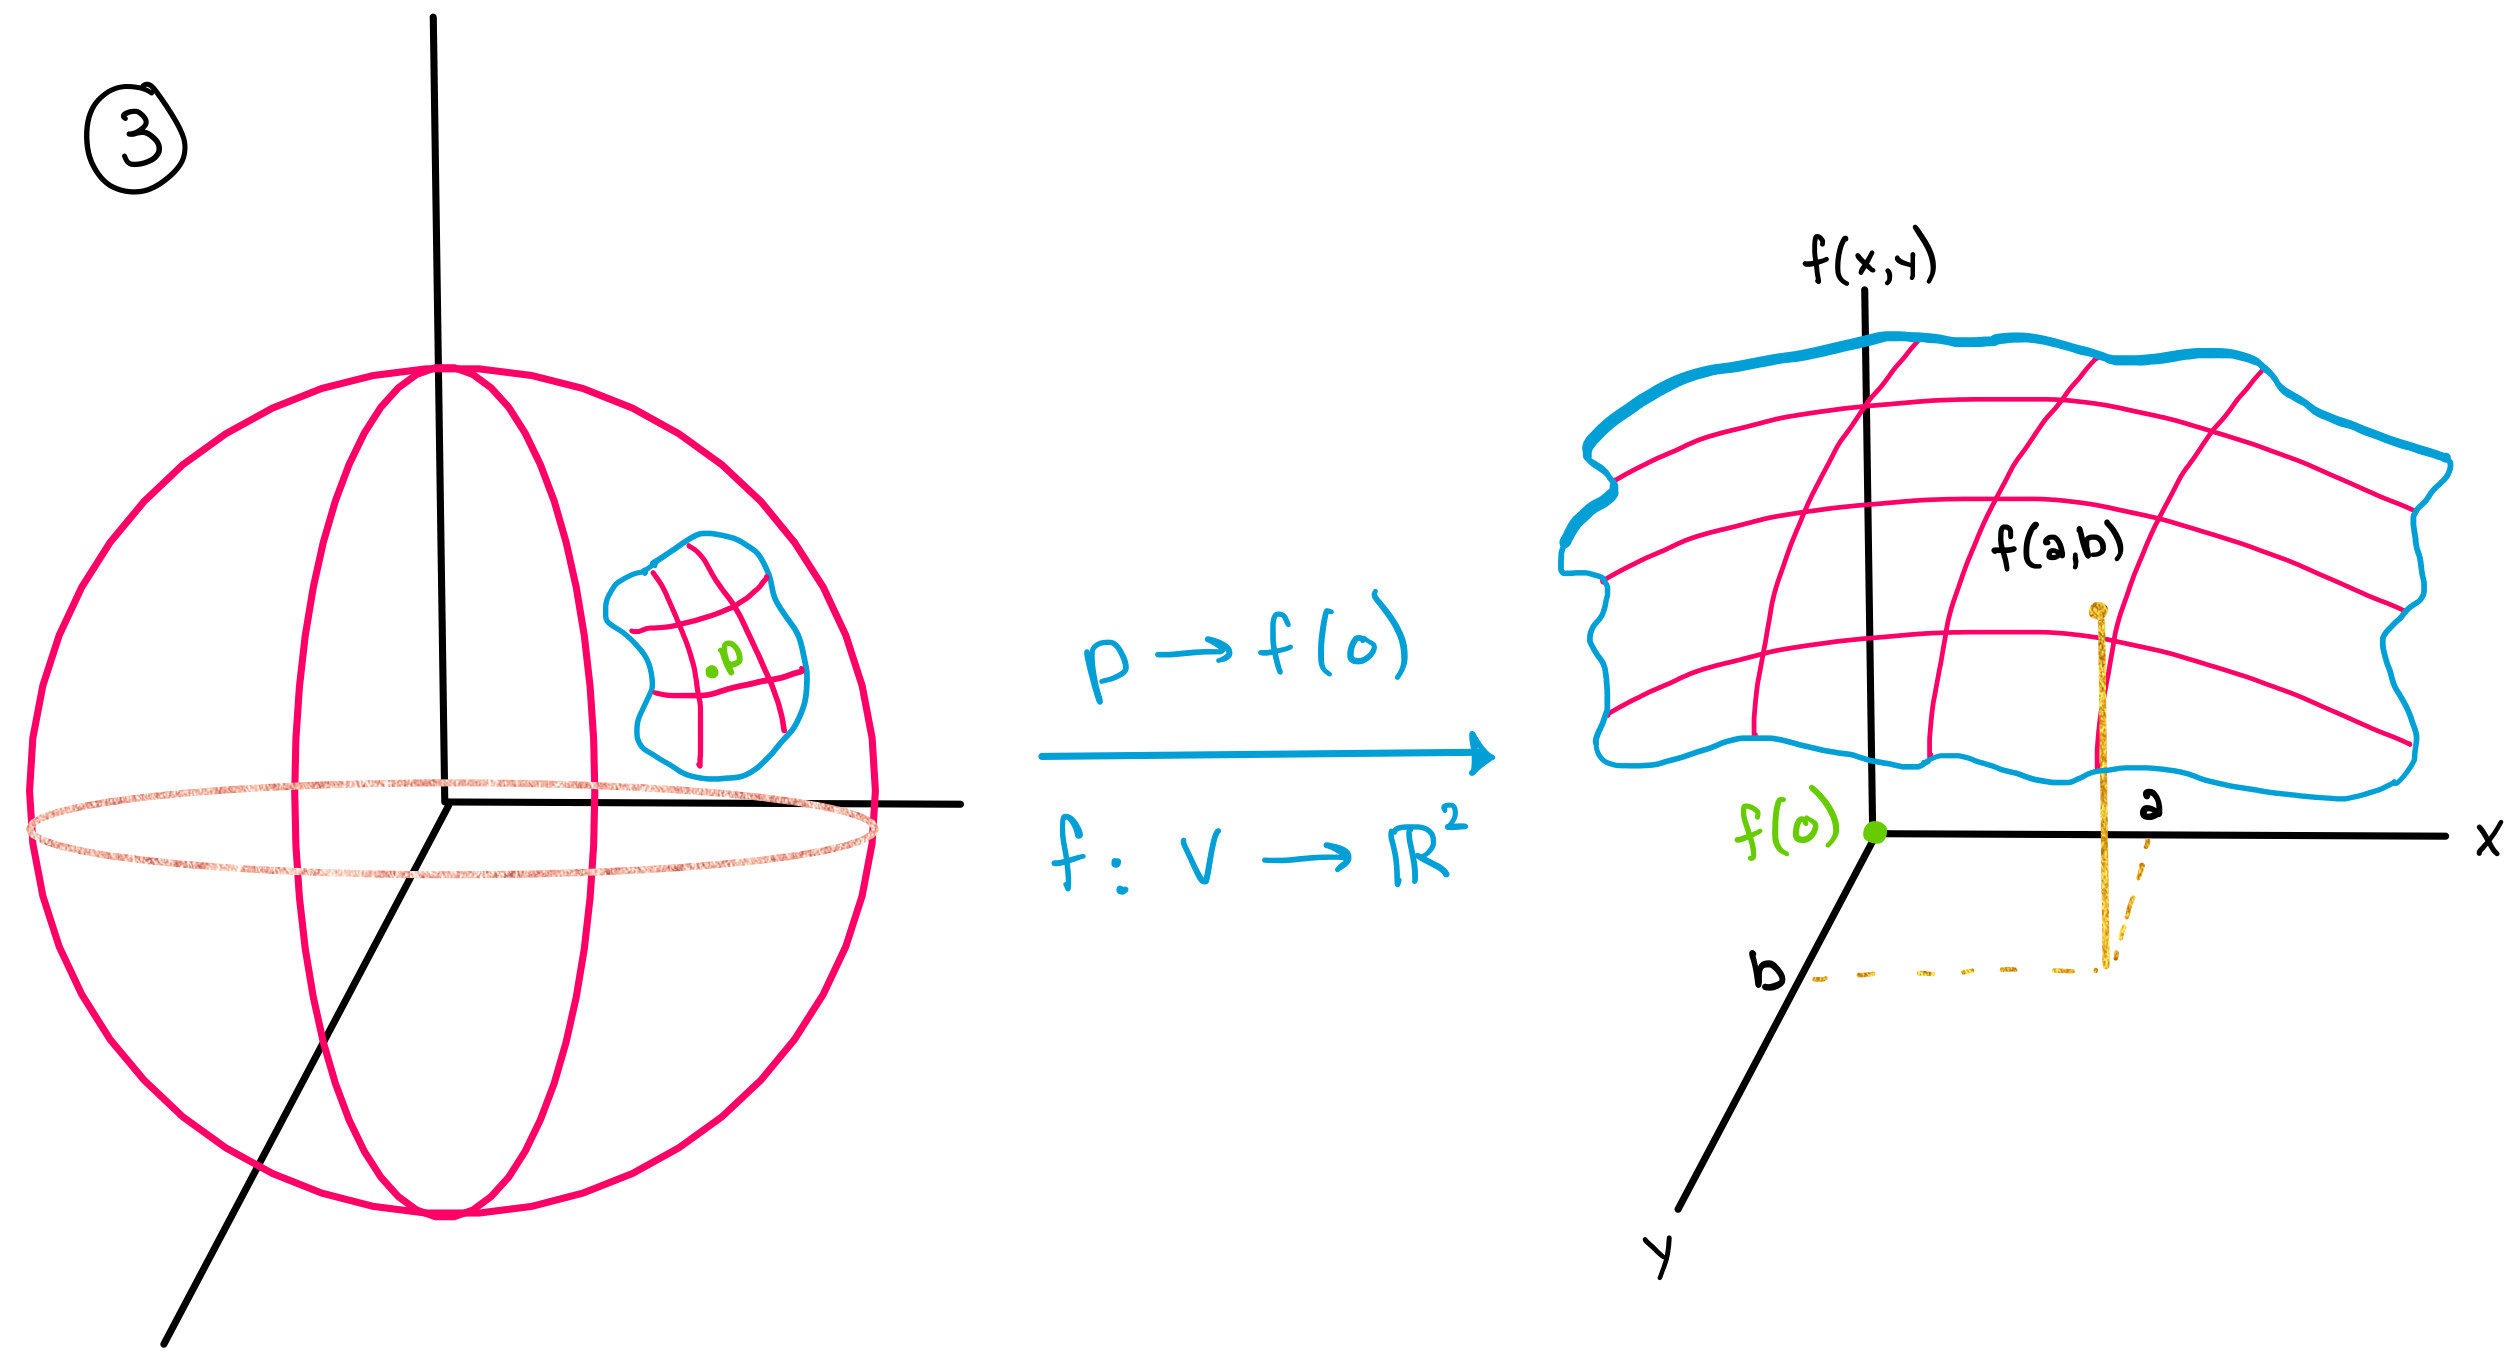 3
p
p → f(0)
f: V → ℝ²
f(x,y)
f(a,b)
f(0)
a
x
b
y